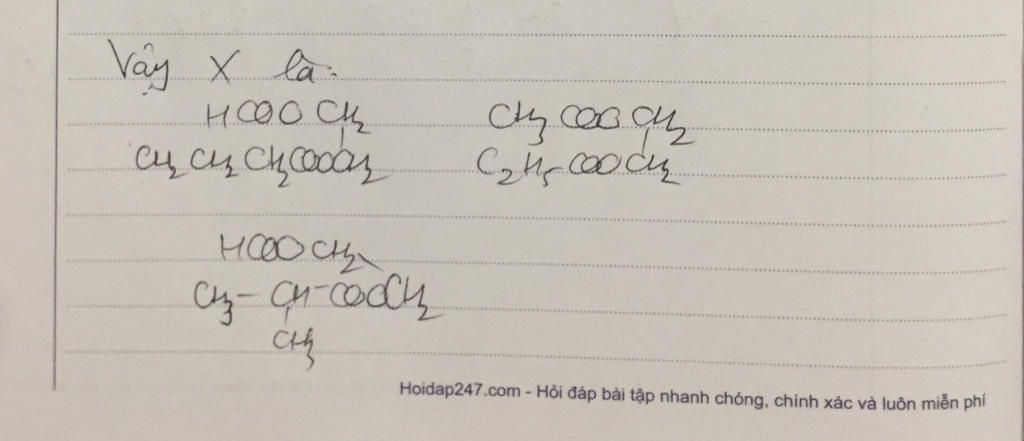 Vậy X là:
HCOOCH2 CH3COOCH2
CH2CH2CH2COOCH2 C2H5-COOCH2
HCOOCH2
CH3-CH-COOCH2
CH3
Hoidap247.com - Hỏi đáp bài tập nhanh chóng, chính xác và luôn miễn phí